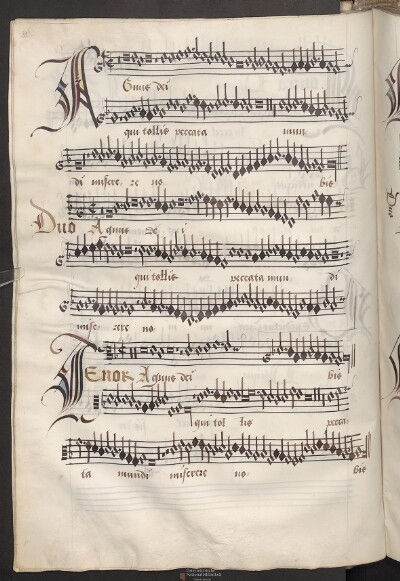 Agnus dei
qui tollis peccata mun
di misere re no bis
Duo Agnus De i
qui tollis peccata mun di
mise rere no
Tenor Agnus dei bis
qui tol lis pecca
ta mundi miserere no bis